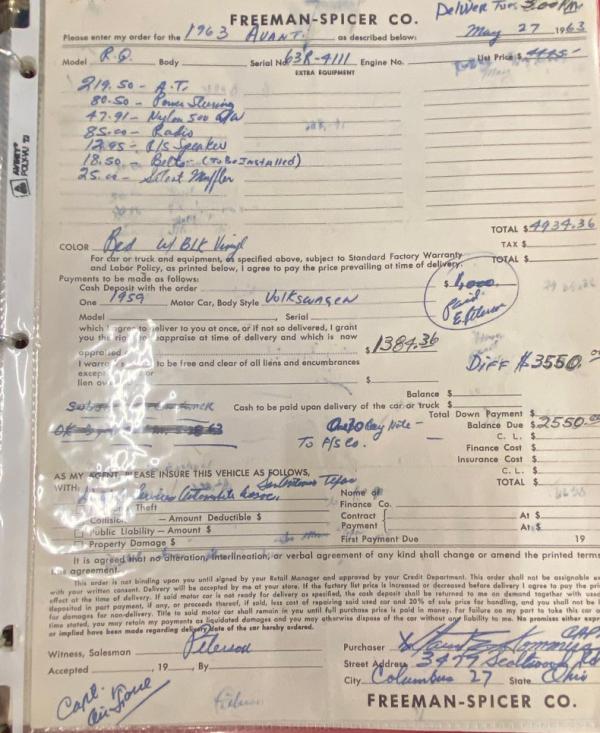 Deliver Tues. 3:00 PM
FREEMAN-SPICER CO.
Please enter my order for the 1963 AVANTI as described below: May 27 1963
Model R.Q. Body Serial No. 63R-4111 Engine No. List Price $ 4445-
EXTRA EQUIPMENT
219.50 - A.T.
80.50 - Power Steering
47.91 - Nylon 500
85.00 - Radio
12.95 - R/S Speaker
18.50 - Belts - (To Be Installed)
25.00 - Silent Muffler
TOTAL $ 4934.36
COLOR Red W/ Blk Vinyl TAX $
For car or truck and equipment, as specified above, subject to Standard Factory Warranty
and Labor Policy, as printed below, I agree to pay the price prevailing at time of delivery. TOTAL $
Payments to be made as follows:
Cash Deposit with the order $ 1,000.
Paid
One 1959 Motor Car, Body Style VOLKSWAGEN
Model Serial
which I agree to deliver to you at once, or if not so delivered, I grant
you the right to reappraise at time of delivery and which is now
appraised $ 1384.36
DIFF $3550.00
I warrant to be free and clear of all liens and encumbrances
except or
lien $
Balance $
Cash to be paid upon delivery of the car or truck $
Total Down Payment $
One 30 Day Note - Balance Due $ 2550.00
To P/S Co. C. L. $
Finance Cost $
Insurance Cost $
C. L. $
AS MY AGENT, PLEASE INSURE THIS VEHICLE AS FOLLOWS, TOTAL $
WITH: Services Automobile Assoc. San Antonio Texas
Theft Name of
Finance Co.
Collision — Amount Deductible $ Contract At $
Public Liability — Amount $ Payment At $
Property Damage $ First Payment Due 19
It is agreed that no alteration, interlineation, or verbal agreement of any kind shall change or amend the printed terms
agreement.
This order is not binding upon you until signed by your Retail Manager and approved by your Credit Department. This order shall not be assignable
with your written consent. Delivery will be accepted by me at your store. If the factory list price is increased or decreased before delivery I agree to pay the
effect at the time of delivery. If said motor car is not ready for delivery as specified, the cash deposit shall be returned to me on demand together with used
deposited in part payment, if any, or proceeds thereof, if sold, less cost of repairing said used car and 20% of sale price for handling, and you shall not be
for damages for non-delivery. Title to said motor car shall remain in you until full purchase price is paid in money. For failure on my part to take this car
time stated, you may retain my payments as liquidated damages and you may otherwise dispose of the car without any liability to me. No promises either
or implied have been made regarding delivery date of the car hereby ordered.
Witness, Salesman Peterson
Purchaser
Street Address 3479
Accepted , 19 , By
City Columbus 27 State Ohio
Capt. in
Air Force
FREEMAN-SPICER CO.